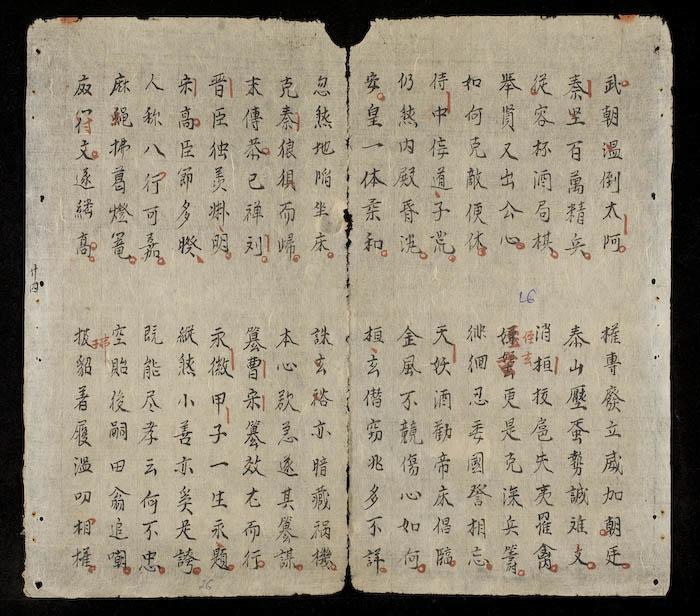 武朝溫倒太阿
權專廢立威加朝廷
秦坚百萬精兵
泰山壓蚕势誠难支
從容杯酒局棋
消桓拔扈失夷罹禽
舉賢又出公心
侄玄更是克深兵籌
如何克敵便休
徘徊忍委國詈相忘
侍中侫道子荒
天妖酒勸帝床倡臨
仍然内殿昏沈
金風不競傷心如何
安皇一体柔和
桓玄僭窃兆多不詳
忽然地陷坐床
誅玄裕亦暗藏祸機
克秦狼狽而帰
本心欲急遂其篡謀
末傳恭已禅刘
篡曹宋篡效尤而行
晋臣独羙淵明
永微甲子一生永題
宋高臣節多暌
縱然小善亦奚足誇
人称八行可嘉
既能尽孝云何不忠
麻蠅拂葛燈篭
空貽後嗣田翁追嘲
符文遂継高
拔貂着履濫叨相權
26
26